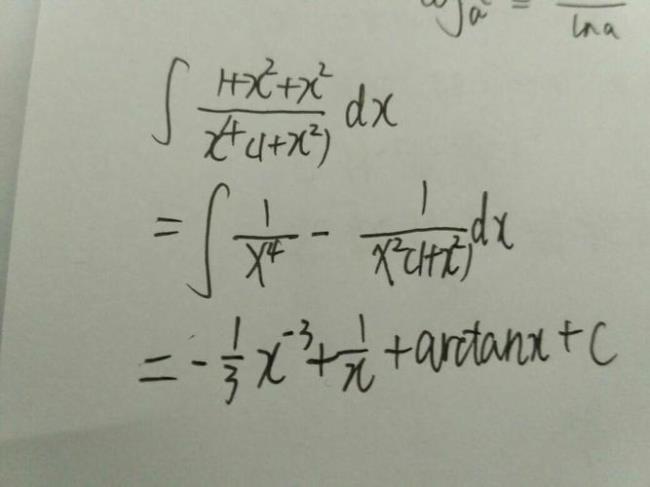 log_a = ——/ln a
∫ (1+x²+x²)/(x⁴(1+x²)) dx
= ∫ 1/x⁴ - 1/(x²(1+x²)) dx
= -1/3 x⁻³ + 1/x + arctanx + C